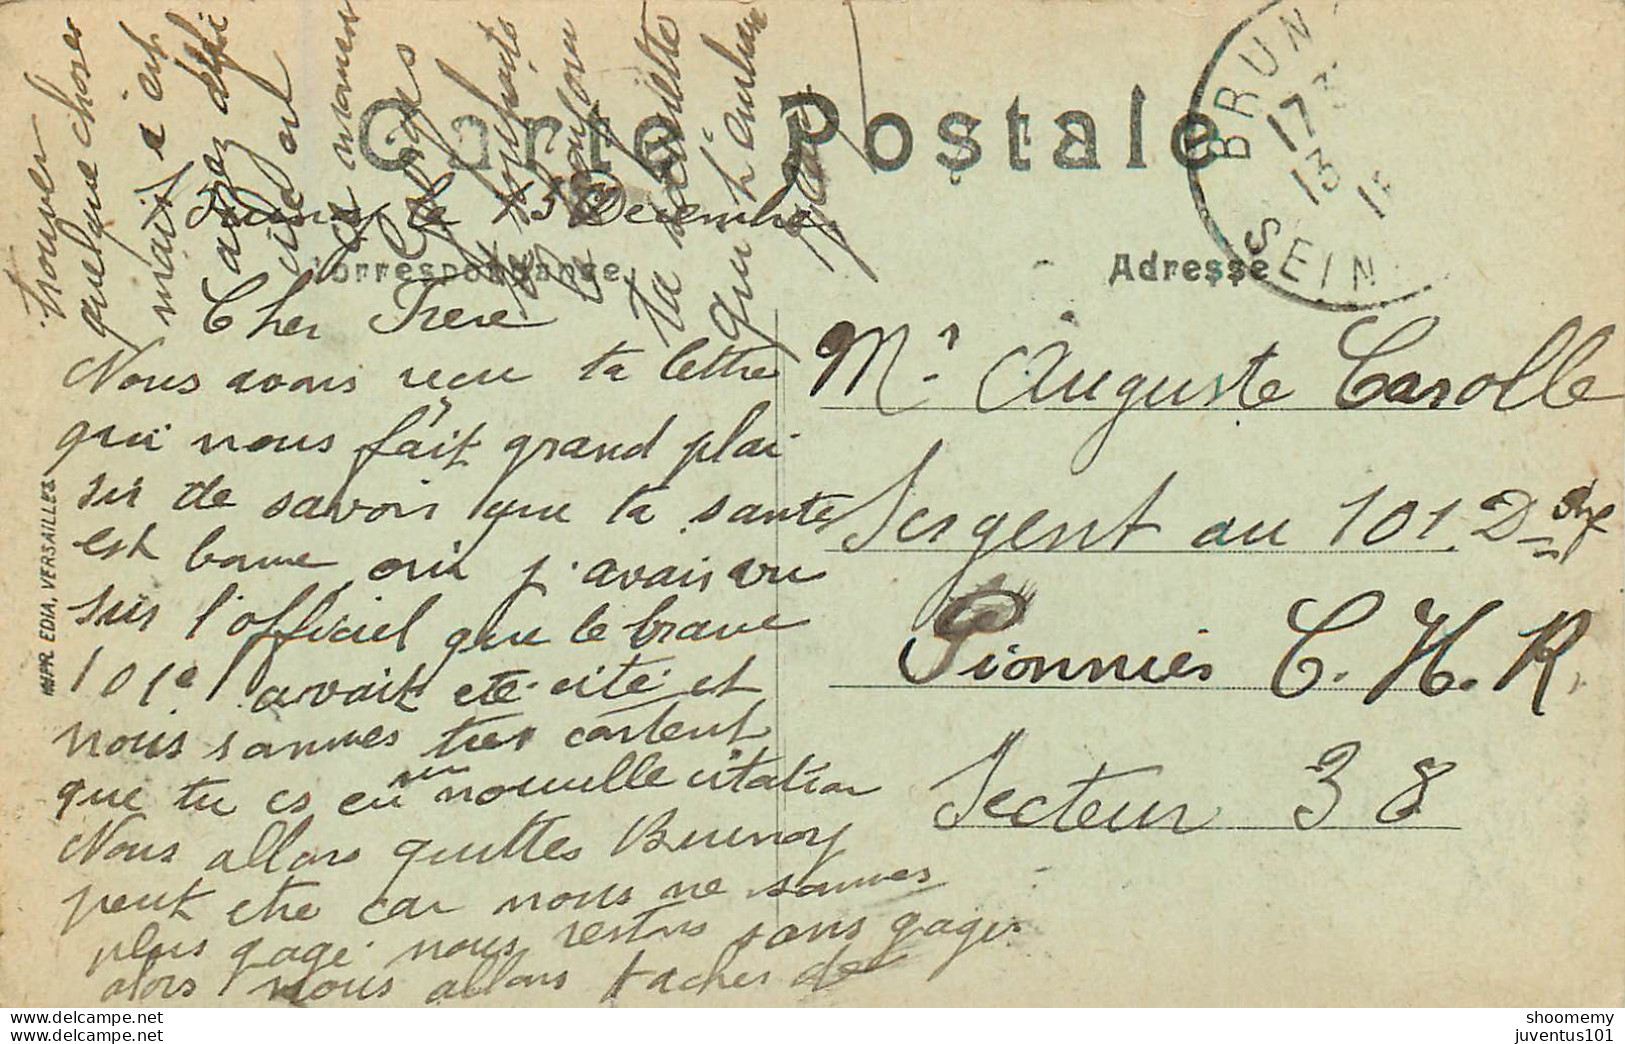 Carte Postale
Correspondance
Adresse
BRUN
17 3
13
SEIN
Brunoy le 13 Decembre
Cher Frere
Nous avons reçu ta lettre
qui nous fait grand plai
sir de savoir que ta sante
est bonne oui j'avais vu
sur l'officiel que le brave
101e avait ete cité et
nous sommes tres content
que tu es eu une nouvelle citation
Nous allons quittes Brunoy
peut etre car nous ne sommes
plus gagé nous restons sans gages
alors nous allons tacher de
trouver
quelque choses
mais
c'est
assez
maman
ta
qui t'
Mr. Auguste Carolle
Sergent au 101. D
Pionnies C. H. R.
Secteur 38
IMPR EDIA, VERSAILLES
shoomemy
juventus101